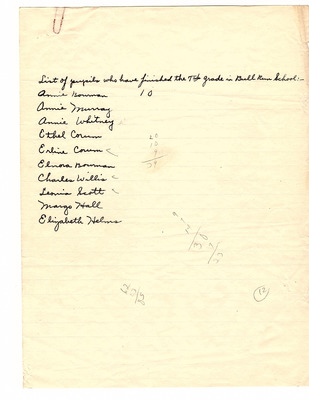 List of pupils who have finished the 7th grade in Bull Run School:-
Annie Bowman 10
Annie Murray
Annie Whitney
Ethel Corum
Erline Corum
Elnora Bowman
Charles Willis
Leonia Scott
Margo Hall
Elizabeth Helms
20
10
12